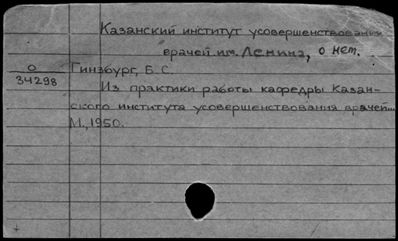 Казанский институт усовершенствования
врачей им. Ленина, о нем.
О
34298
Гинзбург, Б. С.
Из практики работы кафедры Казан-
ского института усовершенствования врачей...
М., 1950.